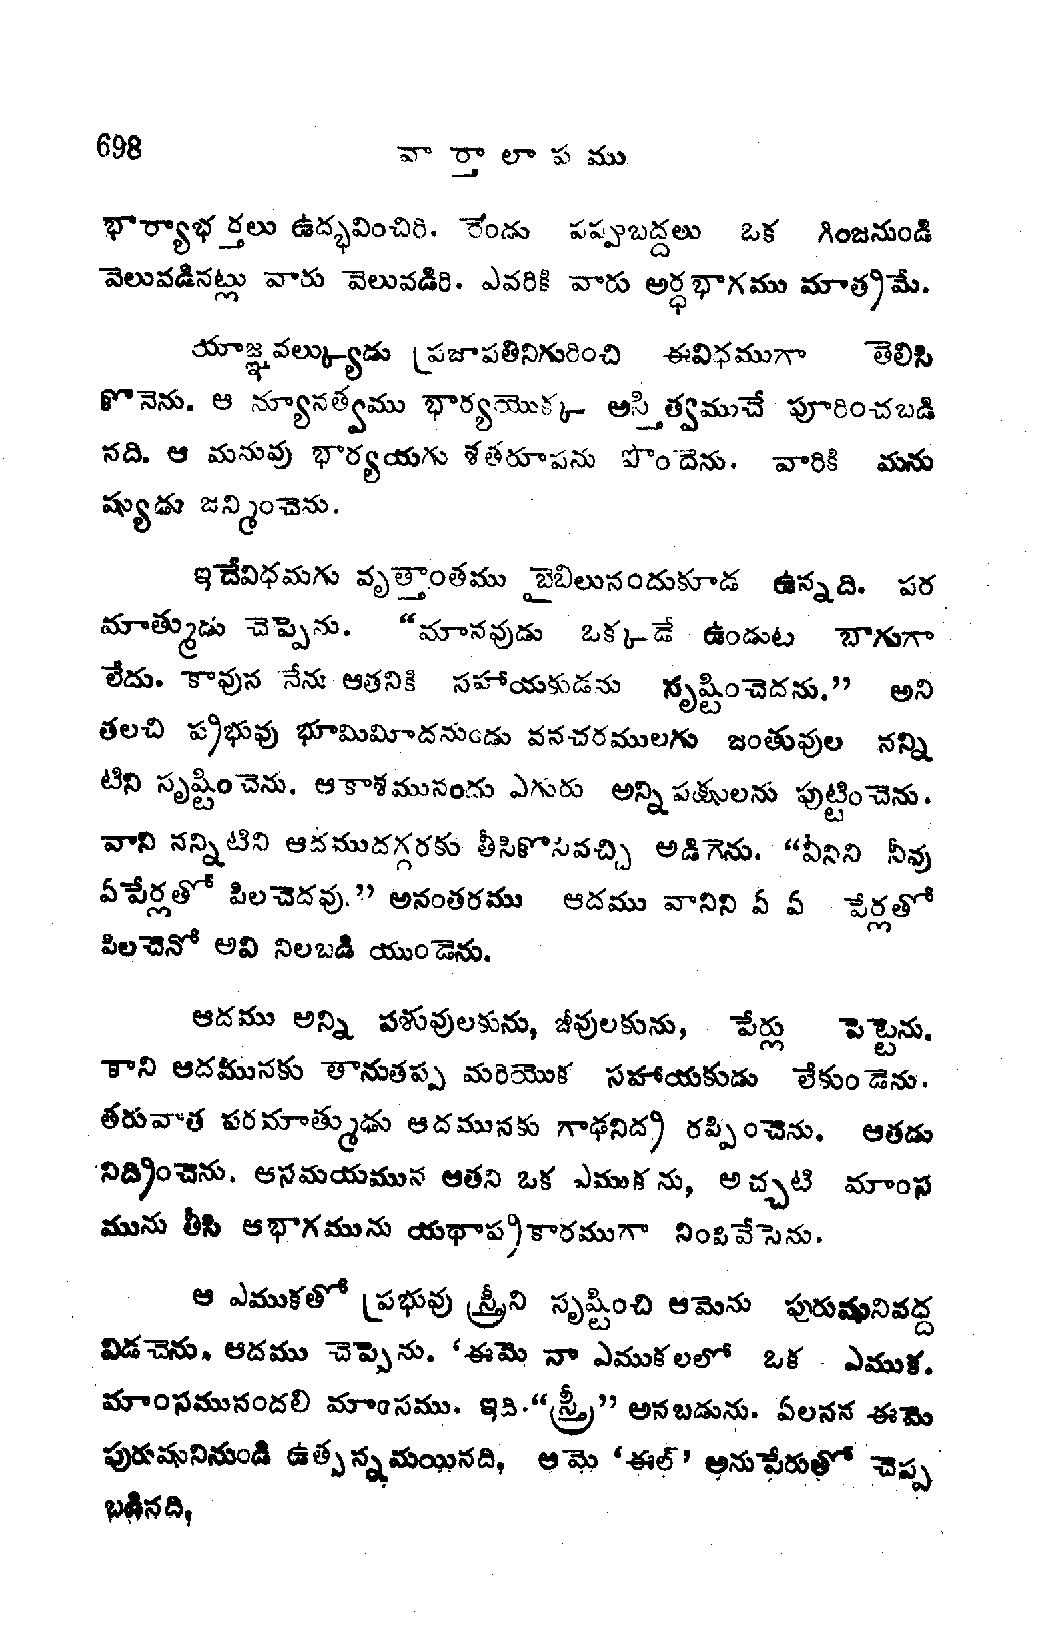 698
వార్తాలాపము
భార్యాభర్తలు ఉద్భవించిరి. రెండు పప్పుబద్దలు ఒక గింజనుండి
వెలువడినట్లు వారు వెలువడిరి. ఎవరికి వారు అర్ధభాగము మాత్రమే.
యాజ్ఞవల్క్యుడు ప్రజాపతినిగురించి ఈవిధముగా తెలిసి
కొనెను. ఆ న్యూనత్వము భార్యయొక్క అస్తిత్వముచే పూరించబడి
నది. ఆ మనువు భార్యయగు శతరూపను పొందెను. వారికి మను
ష్యుడు జన్మించెను.
ఇదేవిధమగు వృత్తాంతము బైబిలునందుకూడ ఉన్నది. పర
మాత్ముడు చెప్పెను. “మానవుడు ఒక్కడే ఉండుట బాగుగా
లేదు. కావున నేను ఆతనికి సహాయకుడను సృష్టించెదను.” అని
తలచి ప్రభువు భూమిమీదనుండు వనచరములగు జంతువుల నన్ని
టిని సృష్టించెను. ఆకాశమునందు ఎగురు అన్ని పక్షులను పుట్టించెను.
వాని నన్నిటిని ఆదముదగ్గరకు తీసికొనివచ్చి అడిగెను. “వీనిని నీవు
ఏపేర్లతో పిలచెదవు.” అనంతరము ఆదము వానిని ఏ ఏ పేర్లతో
పిలచెనో అవి నిలబడి యుండెను.
ఆదము అన్ని పశువులకును, జీవులకును, పేర్లు పెట్టెను.
కాని ఆదమునకు తానుతప్ప మరియొక సహాయకుడు లేకుండెను.
తరువాత పరమాత్ముడు ఆదమునకు గాఢనిద్ర రప్పించెను. ఆతడు
నిద్రించెను. ఆసమయమున ఆతని ఒక ఎముకను, అచ్చటి మాంస
మును తీసి ఆభాగమును యథాప్రకారముగా నింపివేసెను.
ఆ ఎముకతో ప్రభువు స్త్రీని సృష్టించి ఆమెను పురుషునివద్ద
విడచెను. ఆదము చెప్పెను. ‘ఈమె నా ఎముకలలో ఒక ఎముక.
మాంసమునందలి మాంసము. ఇది.“స్త్రీ” అనబడును. ఏలనన ఈమె
పురుషునినుండి ఉత్పన్నమయినది, ఆమె ‘ఈల్’ అనుపేరుతో చెప్ప
బడినది,